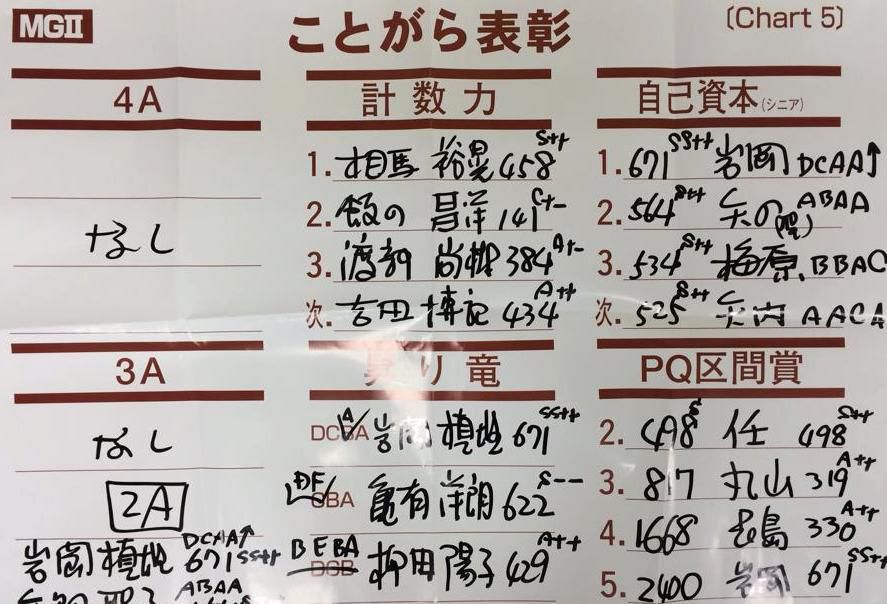 MGⅡ
ことがら表彰
〔Chart 5〕
4A
なし
3A
なし
2A
岩岡 植地 DCAA↑ 671 SS++
ABAA
計数力
1. 相馬 裕晃 458 S++
2. 飯の 昌洋 141
3. 渡部 尚 384 A+-
次. 吉田 博記 434 A++
昇り竜
DCBA A 岩岡 植地 671 SS++
CBA 亀有 洋朗 622 S--
DCB BEBA 柳田 陽子 429 A++
自己資本(シニア)
1. 671 SS++ 岩岡 DCAA↑
2. 564 S++ 矢の ABAA
3. 534 S++ 梅原 BBAC
次. 525 S++ 矢内 AACA
PQ区間賞
2. 498 任 498 S++
3. 817 丸山 319 A++
4. 1668 島 330 A++
5. 2400 岩岡 671 SS++